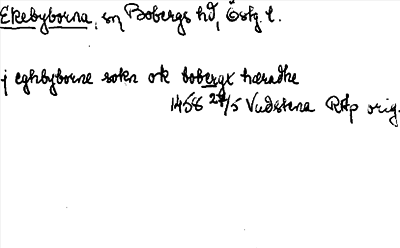 Ekebyborna, sn Bobergs hd, Östg. l.
j eghbyborne sokn ok bobergx hæradhe
1458 24/5 Vadstena RAp orig.